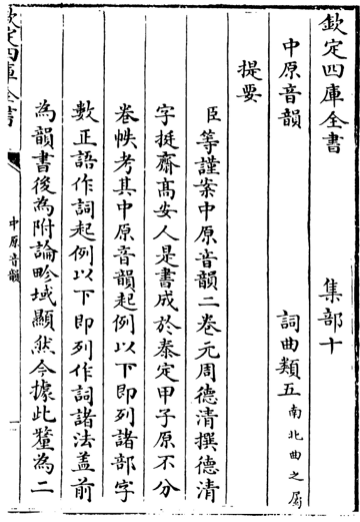 欽定四庫全書　集部十
中原音韻　詞曲類五南北曲之屬
提要
臣等謹案中原音韻二卷元周德清撰德清
字挺齋髙安人是書成於泰定甲子原不分
卷帙考其中原音韻起例以下即列諸部字
數正語作詞起例以下即列作詞諸法盖前
為韻書後為附論畛域顯然今據此釐為二
欽定四庫全書
中原音韻
一